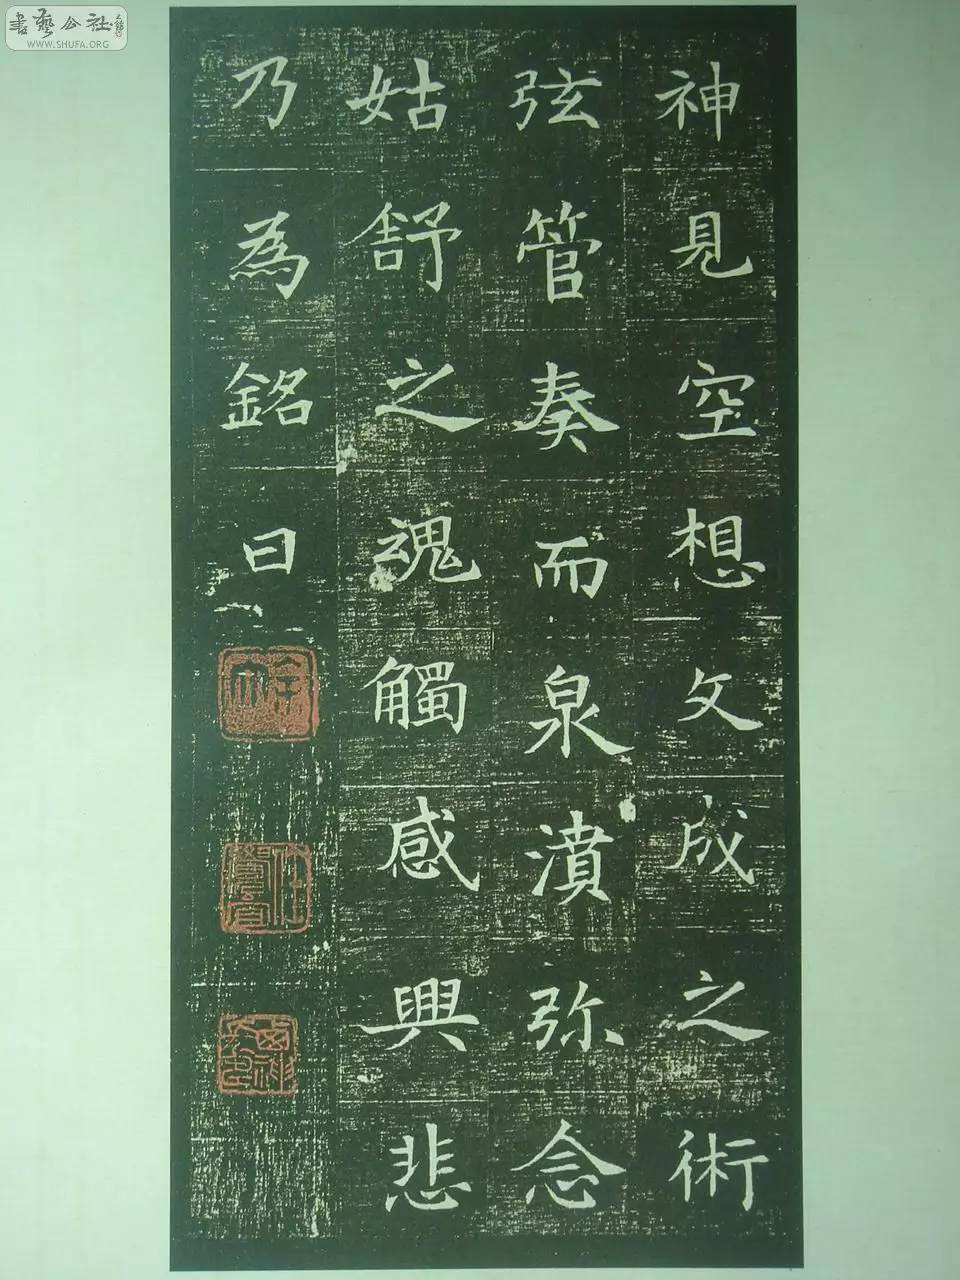 神見空想文成之術
弦管奏而泉濆弥念
姑舒之魂觸感興悲
乃為銘曰
書藝公社
WWW.SHUFA.ORG